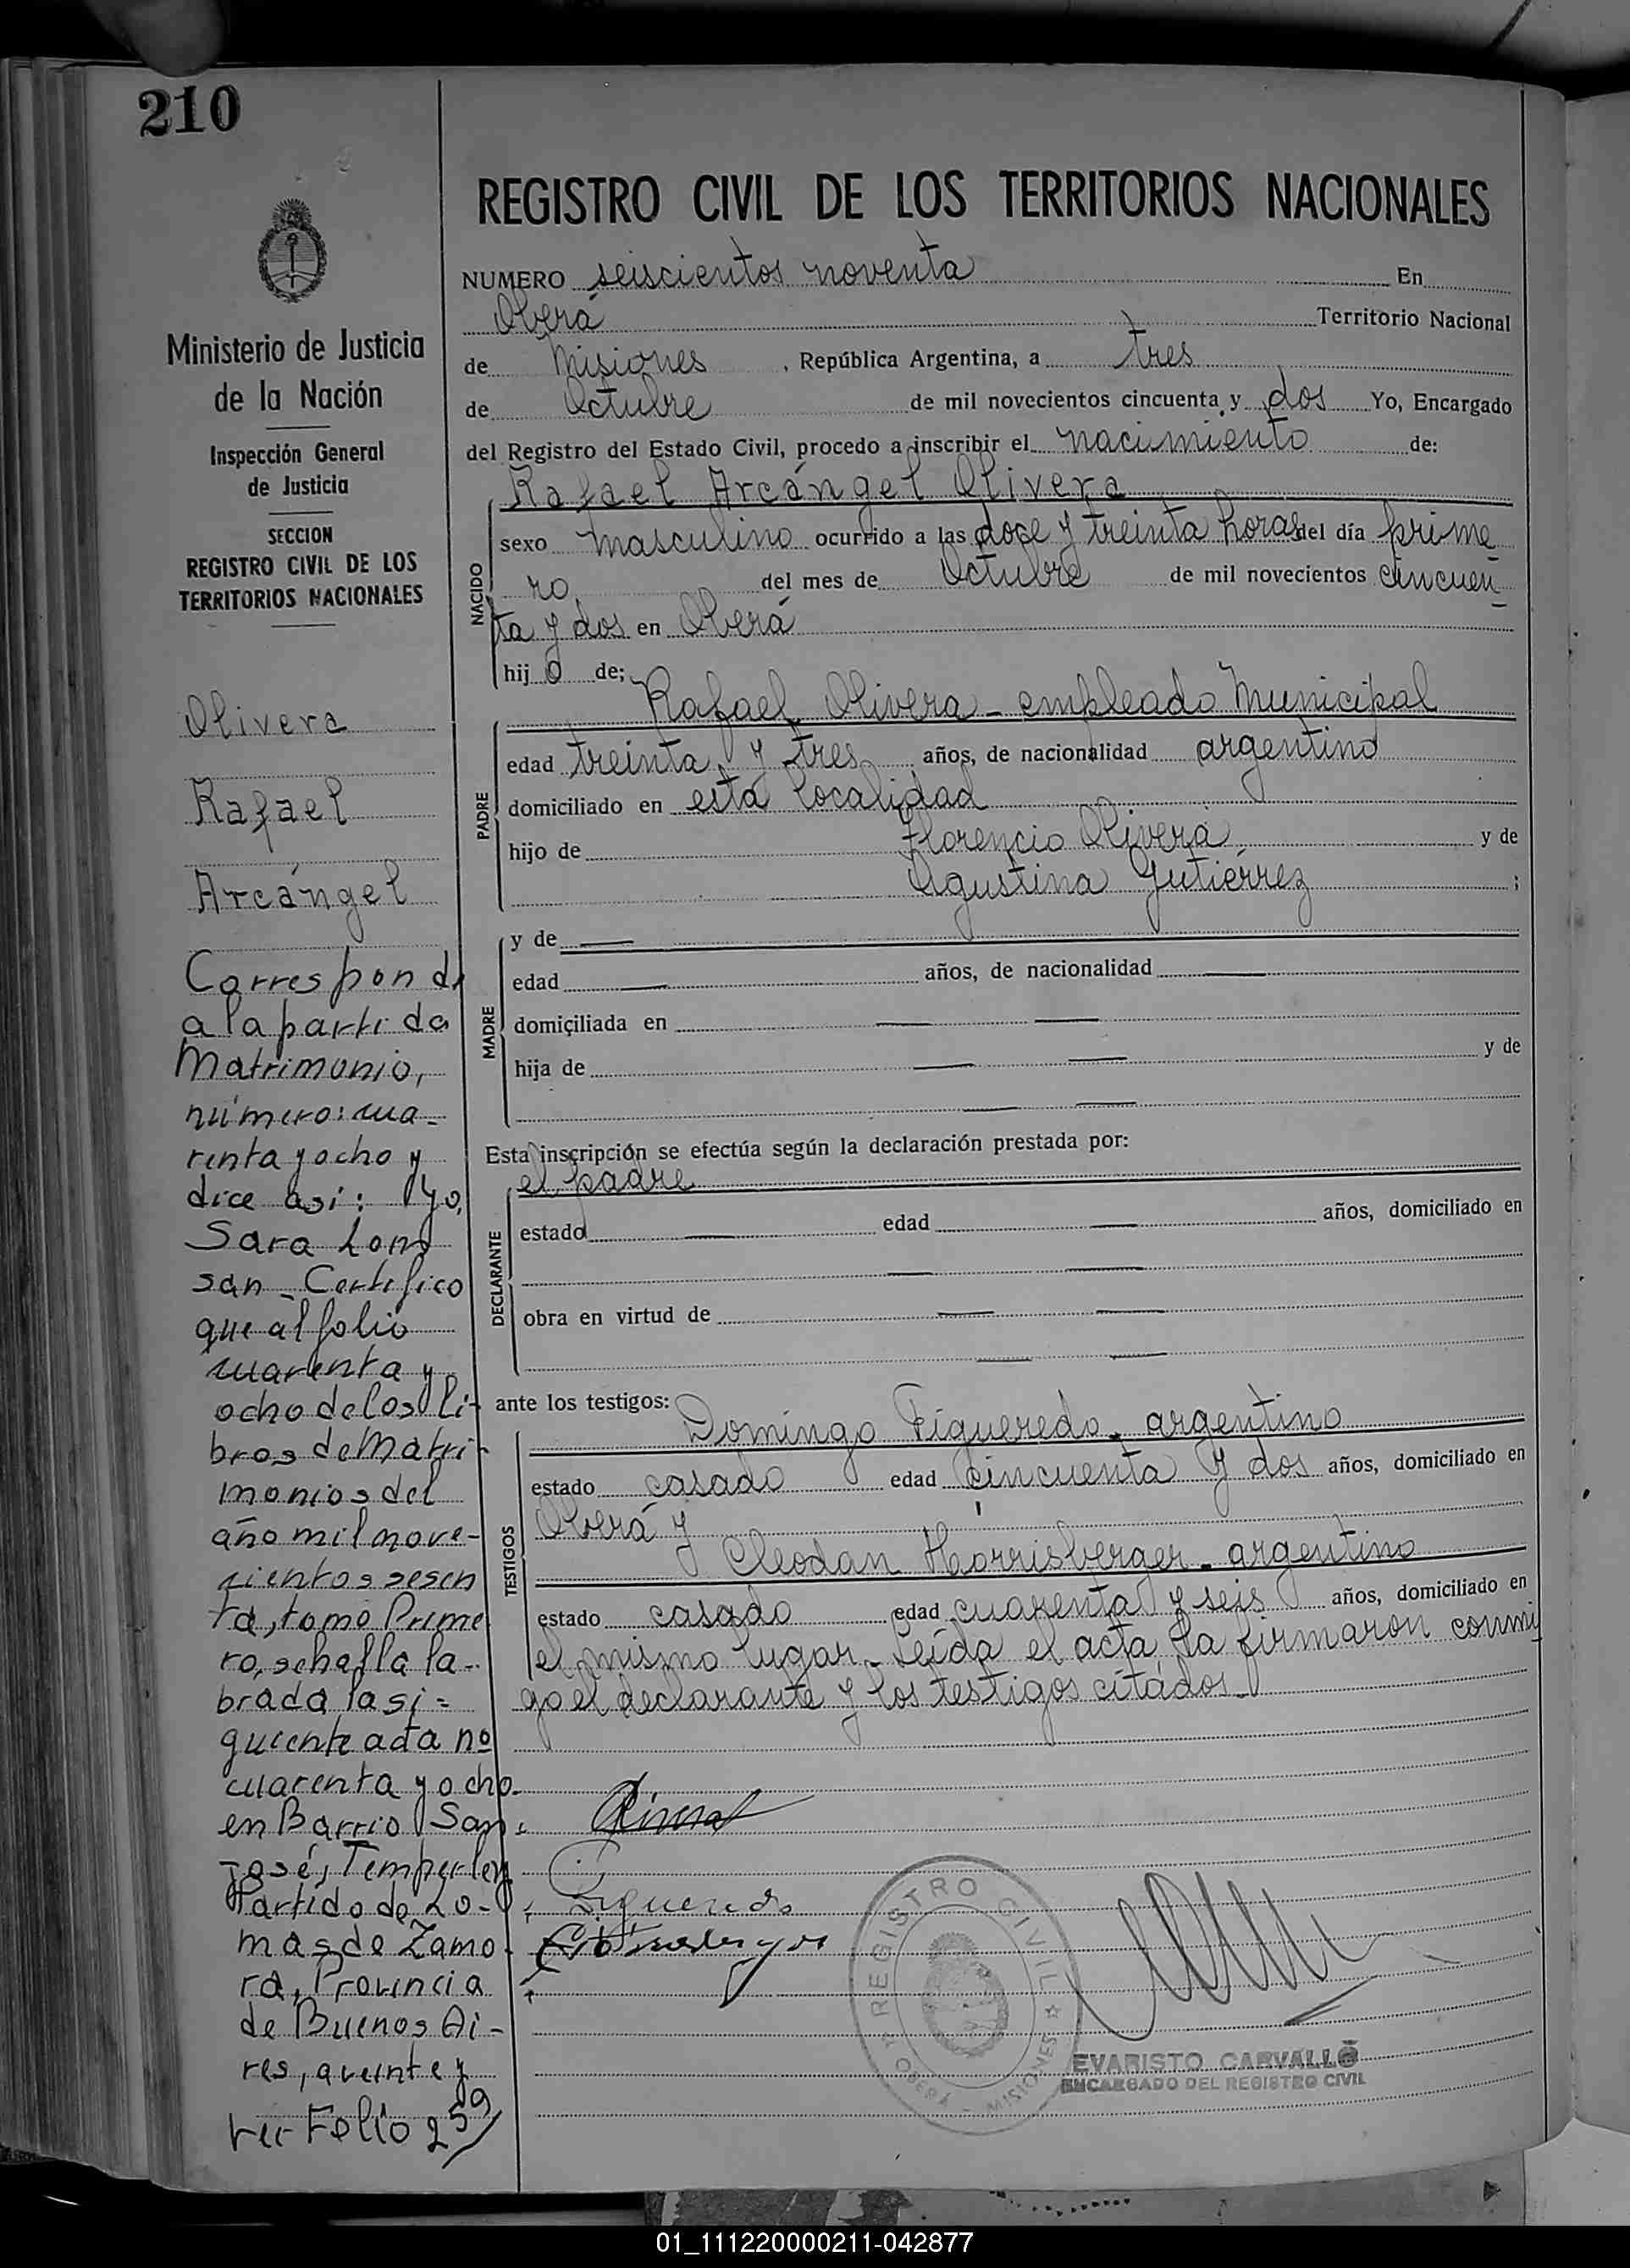 210
Ministerio de Justicia
de la Nación
Inspección General
de Justicia
SECCION
REGISTRO CIVIL DE LOS
TERRITORIOS NACIONALES
Olivera
Rafael
Arcángel
Corresponde
a la partida
Matrimonio,
número: cua-
renta y ocho y
dice así: Yo,
Sara
san - Certifico
que al folio
cuarenta y
ocho de los li-
bros de Matri-
monios del
año mil nove-
cientos sesen
ta, tomo Prime
ro, se halla la-
brada la si=
guiente acta nº
cuarenta y ocho
en Barrio San
José, Temperley
Partido de Lo-
mas de Zamo
ra, Provincia
de Buenos Ai-
res, a veinte y
ver Folio 259
REGISTRO CIVIL DE LOS TERRITORIOS NACIONALES
NUMERO seiscientos noventa En
Oberá Territorio Nacional
de Misiones, República Argentina, a tres
de Octubre de mil novecientos cincuenta y dos Yo, Encargado
del Registro del Estado Civil, procedo a inscribir el nacimiento de:
Rafael Arcángel Olivera
NACIDO
sexo masculino ocurrido a las doce y treinta horas del día prime
ro del mes de Octubre de mil novecientos cincuen
ta y dos en Oberá
hijo de;
Rafael Olivera - empleado Municipal
PADRE
edad treinta y tres años, de nacionalidad argentino
domiciliado en esta localidad
hijo de Florencio Olivera y de
Agustina Gutiérrez ;
MADRE
y de —
edad — años, de nacionalidad —
domiciliada en — —
hija de — — y de
— —
Esta inscripción se efectúa según la declaración prestada por:
el padre
DECLARANTE
estado — edad — años, domiciliado en
— —
obra en virtud de — —
— —
ante los testigos:
Domingo Figueredo - argentino
TESTIGOS
estado casado edad cincuenta y dos años, domiciliado en
Oberá y
Cleodan Horrisberger - argentino
estado casado edad cuarenta y seis años, domiciliado en
el mismo lugar - Leída el acta la firmaron conmi
go el declarante y los testigos citados.-
Olivera
Figueredo
REGISTRO CIVIL
OBERÁ - MISIONES
EVARISTO CARVALLO
ENCARGADO DEL REGISTRO CIVIL
01_111220000211-042877